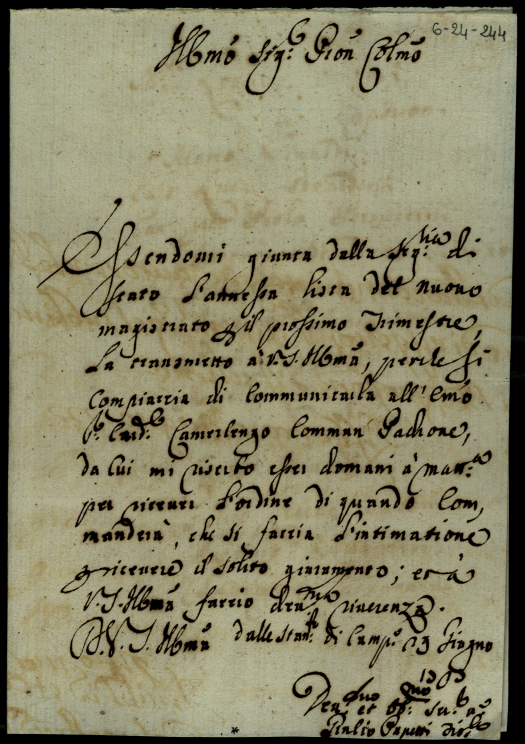 6-24-244
Illmo Sig.r Pron Colmo
Essendomi giunta dalla Seg.ria di
Stato l'annessa lista del nuovo
magistrato p il prossimo Trimestre,
la transmetto à V.S. Illma, perche si
compiaccia di communicarla all'Emo
S.r Card.l Camerlengo commun Padrone,
da lui mi riserbo esser domani à matt.a
per ricever l'ordine di quando com,
manderà, che si faccia l'intimatione
p ricevere il solito giuramento; et à
V.S. Illma faccio dev.ma riverenza.
D. V. S. Illma dalle Stan.e di Camp.o 23 Giugno
Dev.mo et Obl.mo Ser.e
Giulio